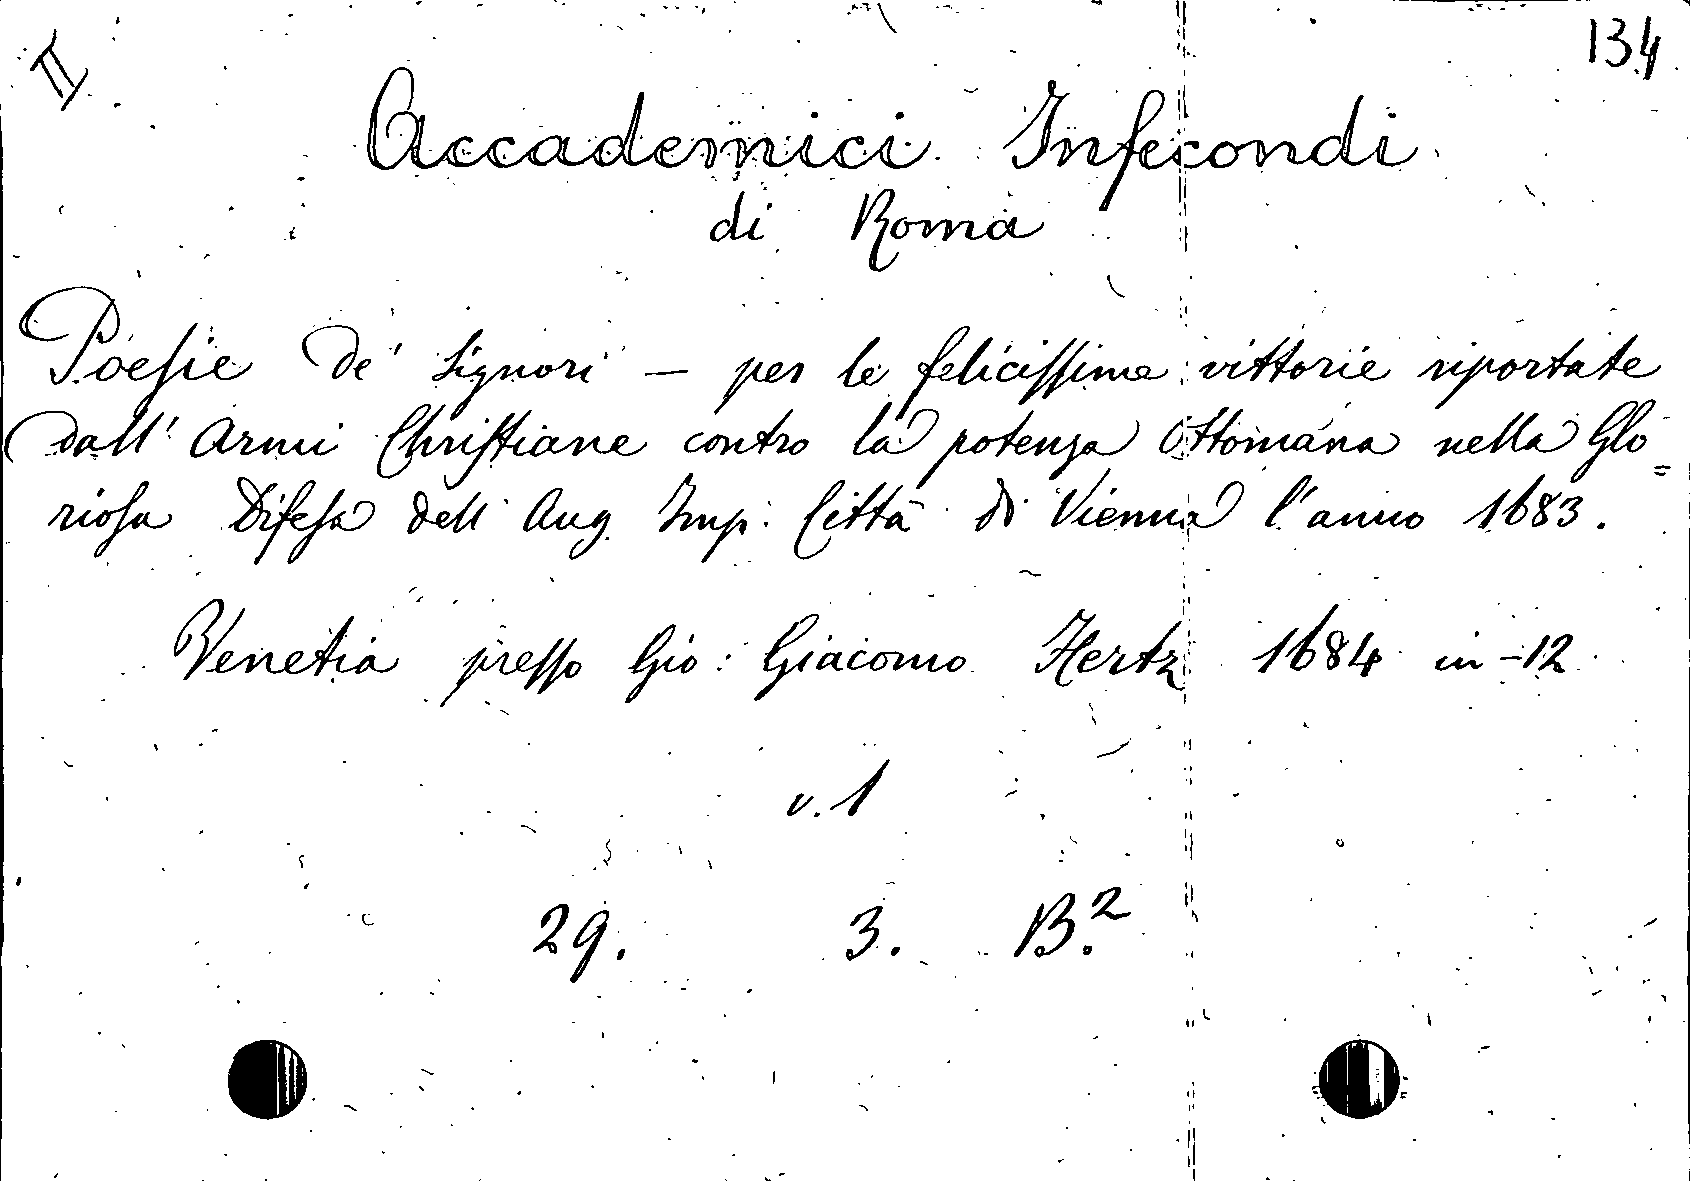 II
134
Accademici Infecondi
di Roma
Poesie de' Signori — per le felicissime vittorie riportate
dall' Armi Christiane contro la potenza Ottomana nella Glo=
riosa Difesa dell' Aug. Imp: Città di Vienna l'anno 1683.
Venetia presso Gio: Giacomo Hertz 1684 in-12
v. 1
29. 3. B.²